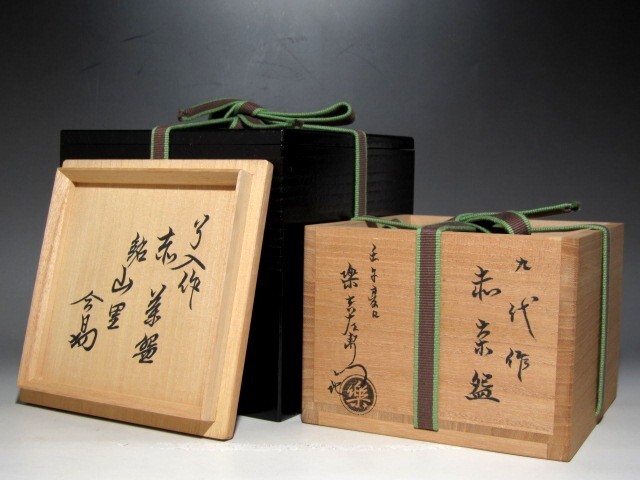 了入作
赤茶盌
銘山里
今日
九代作
赤茶盌
楽吉左衛門
樂